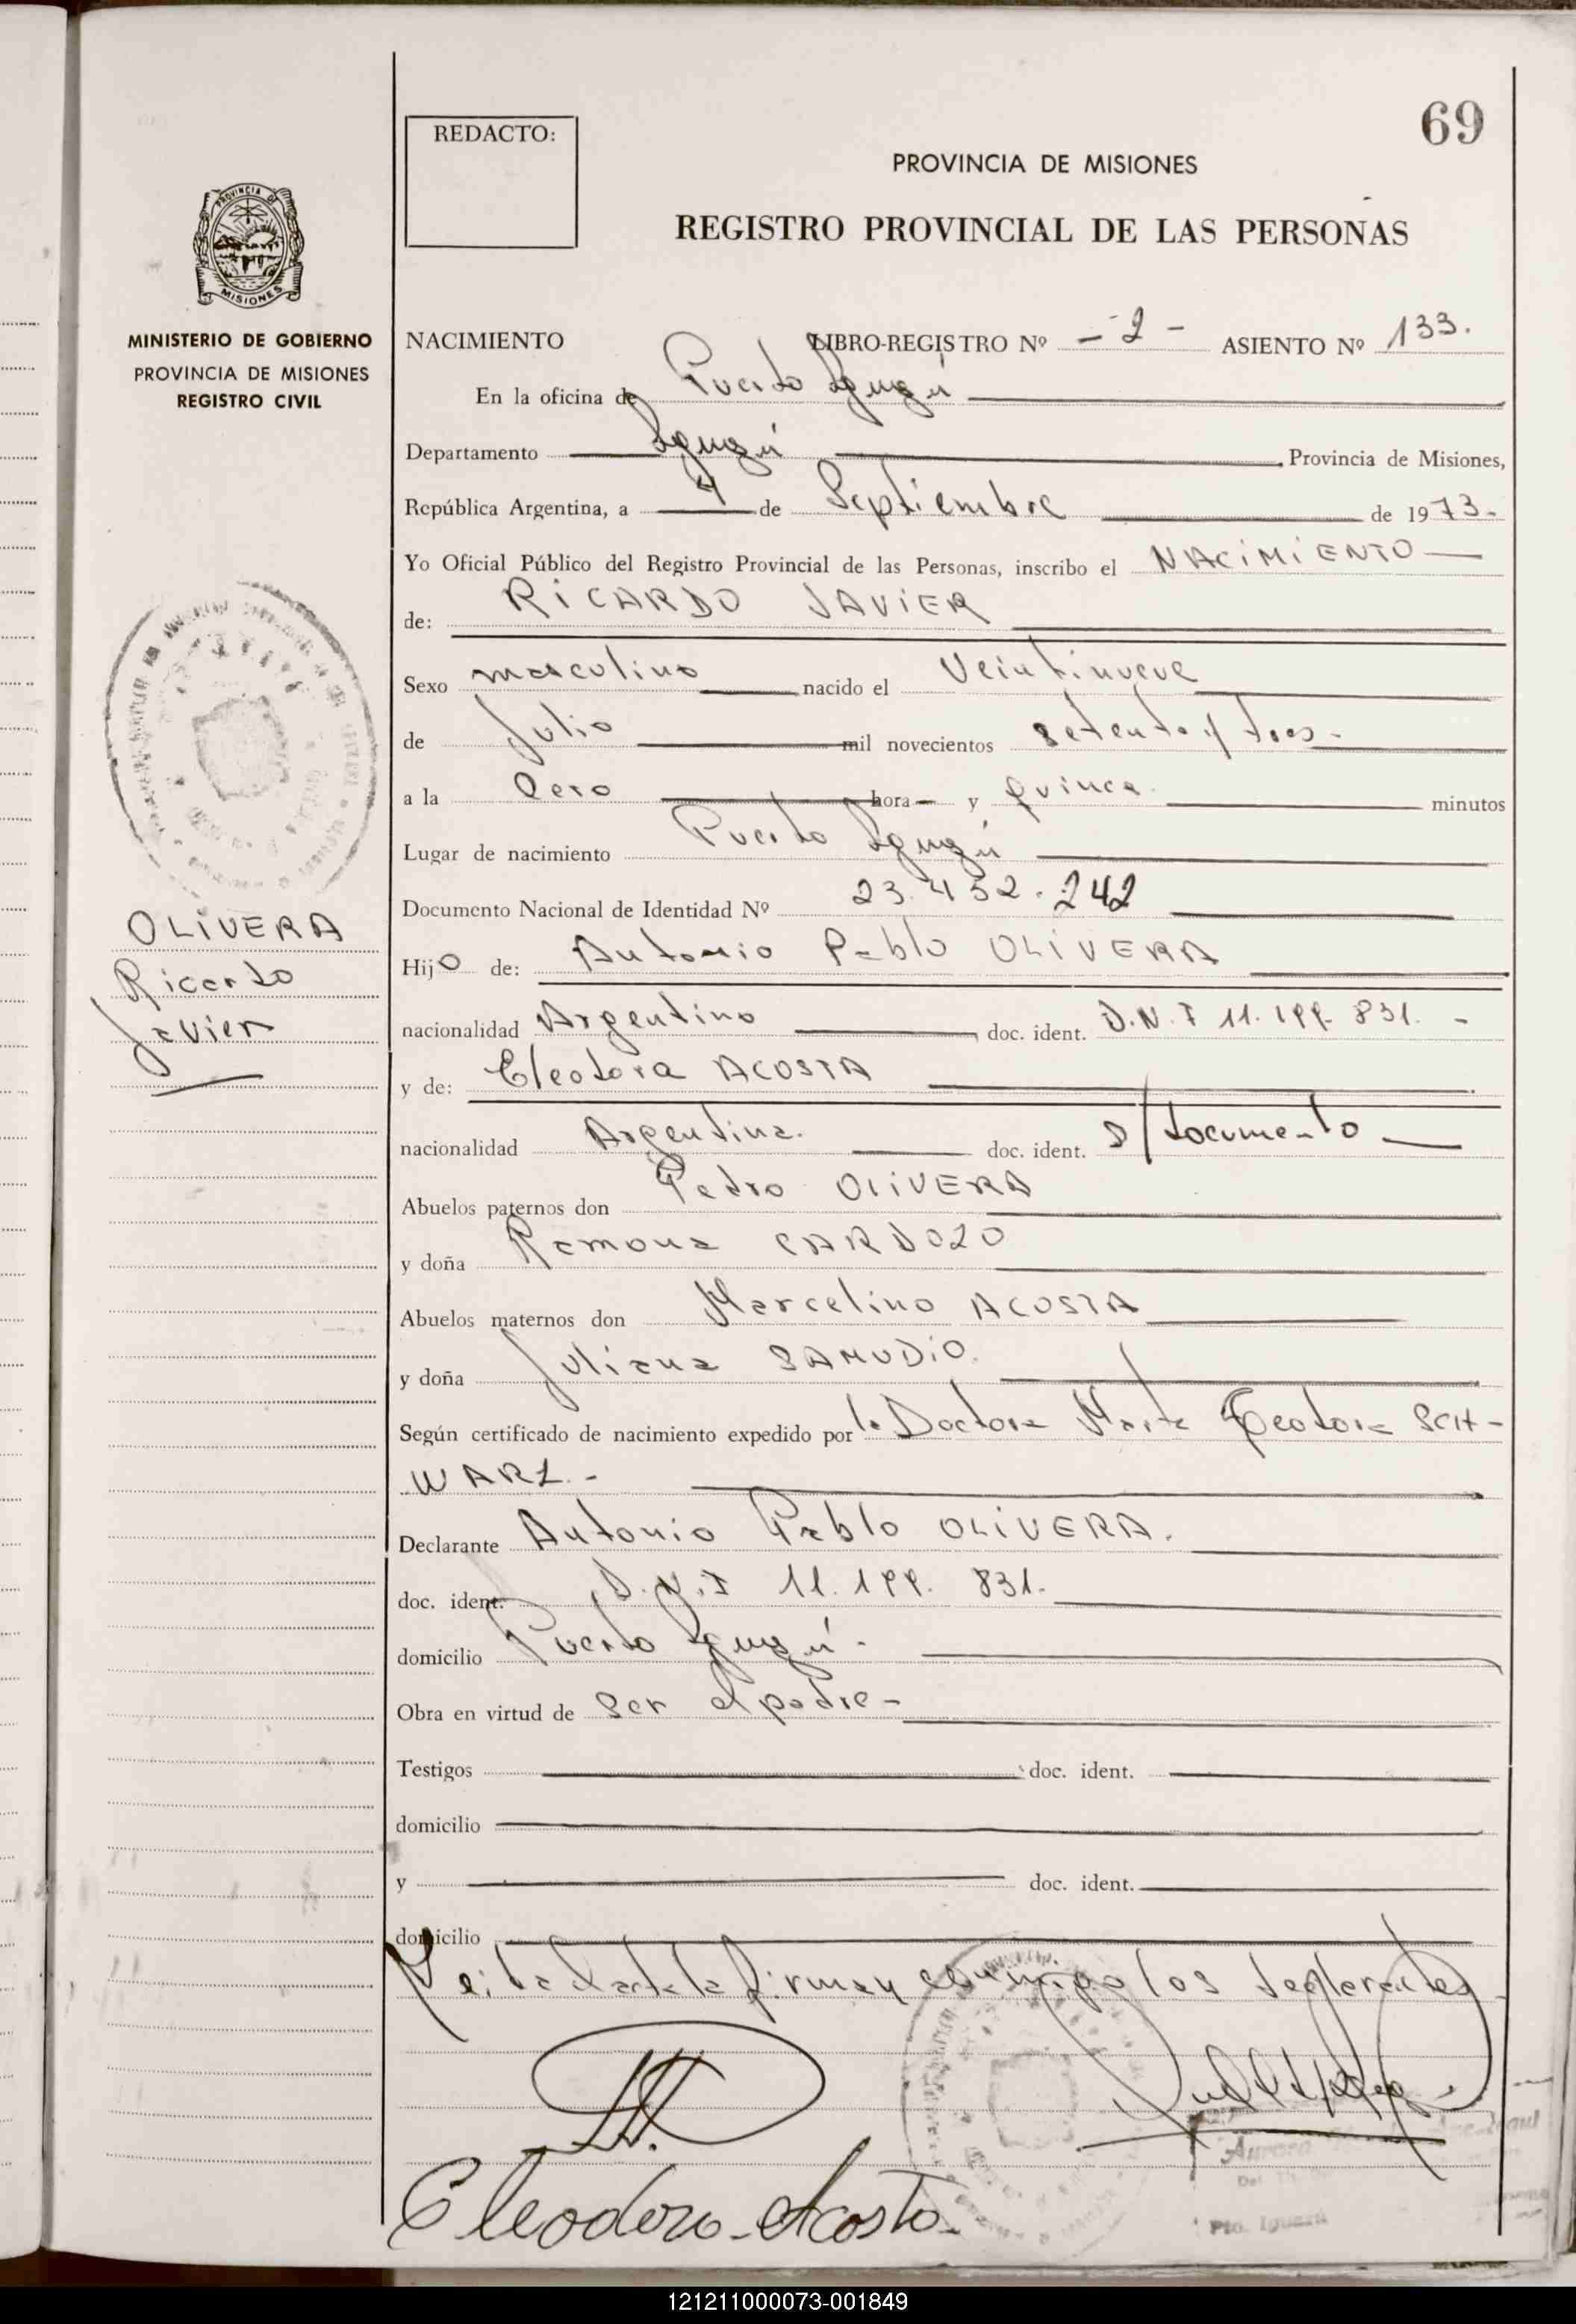 69
REDACTO:
PROVINCIA DE MISIONES
REGISTRO PROVINCIAL DE LAS PERSONAS
PROVINCIA DE
MISIONES
MINISTERIO DE GOBIERNO
PROVINCIA DE MISIONES
REGISTRO CIVIL
OLIVERA
Ricardo
Javier
NACIMIENTO LIBRO-REGISTRO Nº - 2 - ASIENTO Nº 133.
En la oficina de Puerto Iguazú
Departamento Iguazú Provincia de Misiones,
República Argentina, a 4 de Septiembre de 1973.-
Yo Oficial Público del Registro Provincial de las Personas, inscribo el NACIMIENTO
de: RICARDO JAVIER
Sexo masculino nacido el Veintinueve
de Julio mil novecientos setenta y tres-
a la Cero hora y Quince minutos
Lugar de nacimiento Puerto Iguazú
Documento Nacional de Identidad Nº 23.452.242
Hijo de: Antonio Pablo OLIVERA
nacionalidad Argentino doc. ident. D.N.I 11.199.831. -
y de: Cleodora ACOSTA
nacionalidad Argentina. doc. ident. s/documento
Abuelos paternos don Pedro OLIVERA
y doña Ramona CARDOZO
Abuelos maternos don Marcelino ACOSTA
y doña Juliana SAMUDIO.
Según certificado de nacimiento expedido por la Doctora Marta Teodora SCH-
WARZ.-
Declarante Antonio Pablo OLIVERA.
doc. ident. D.N.I 11.199.831.
domicilio Puerto Iguazú.
Obra en virtud de ser el padre-
Testigos doc. ident.
domicilio
y doc. ident.
domicilio
Leida el acta la firman conmigo los declarantes
Cleodora Acosta.
Aurora
Pto. Iguazú
121211000073-001849